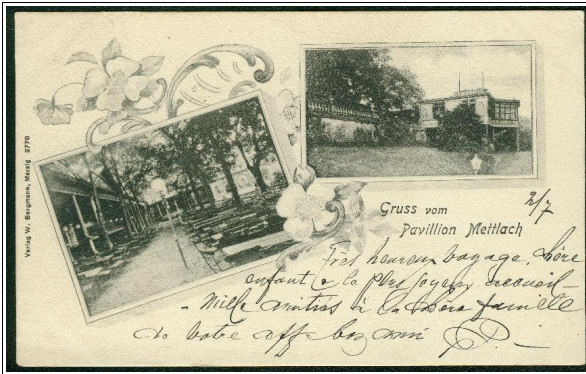 Verlag W. Bergmann, Merzig 2770
Gruss vom
Pavillion Mettlach
2/7
Très heureux voyage, chère
enfant & le plus joyeux accueil –
– Mille amitiés à la chère famille
de votre aff